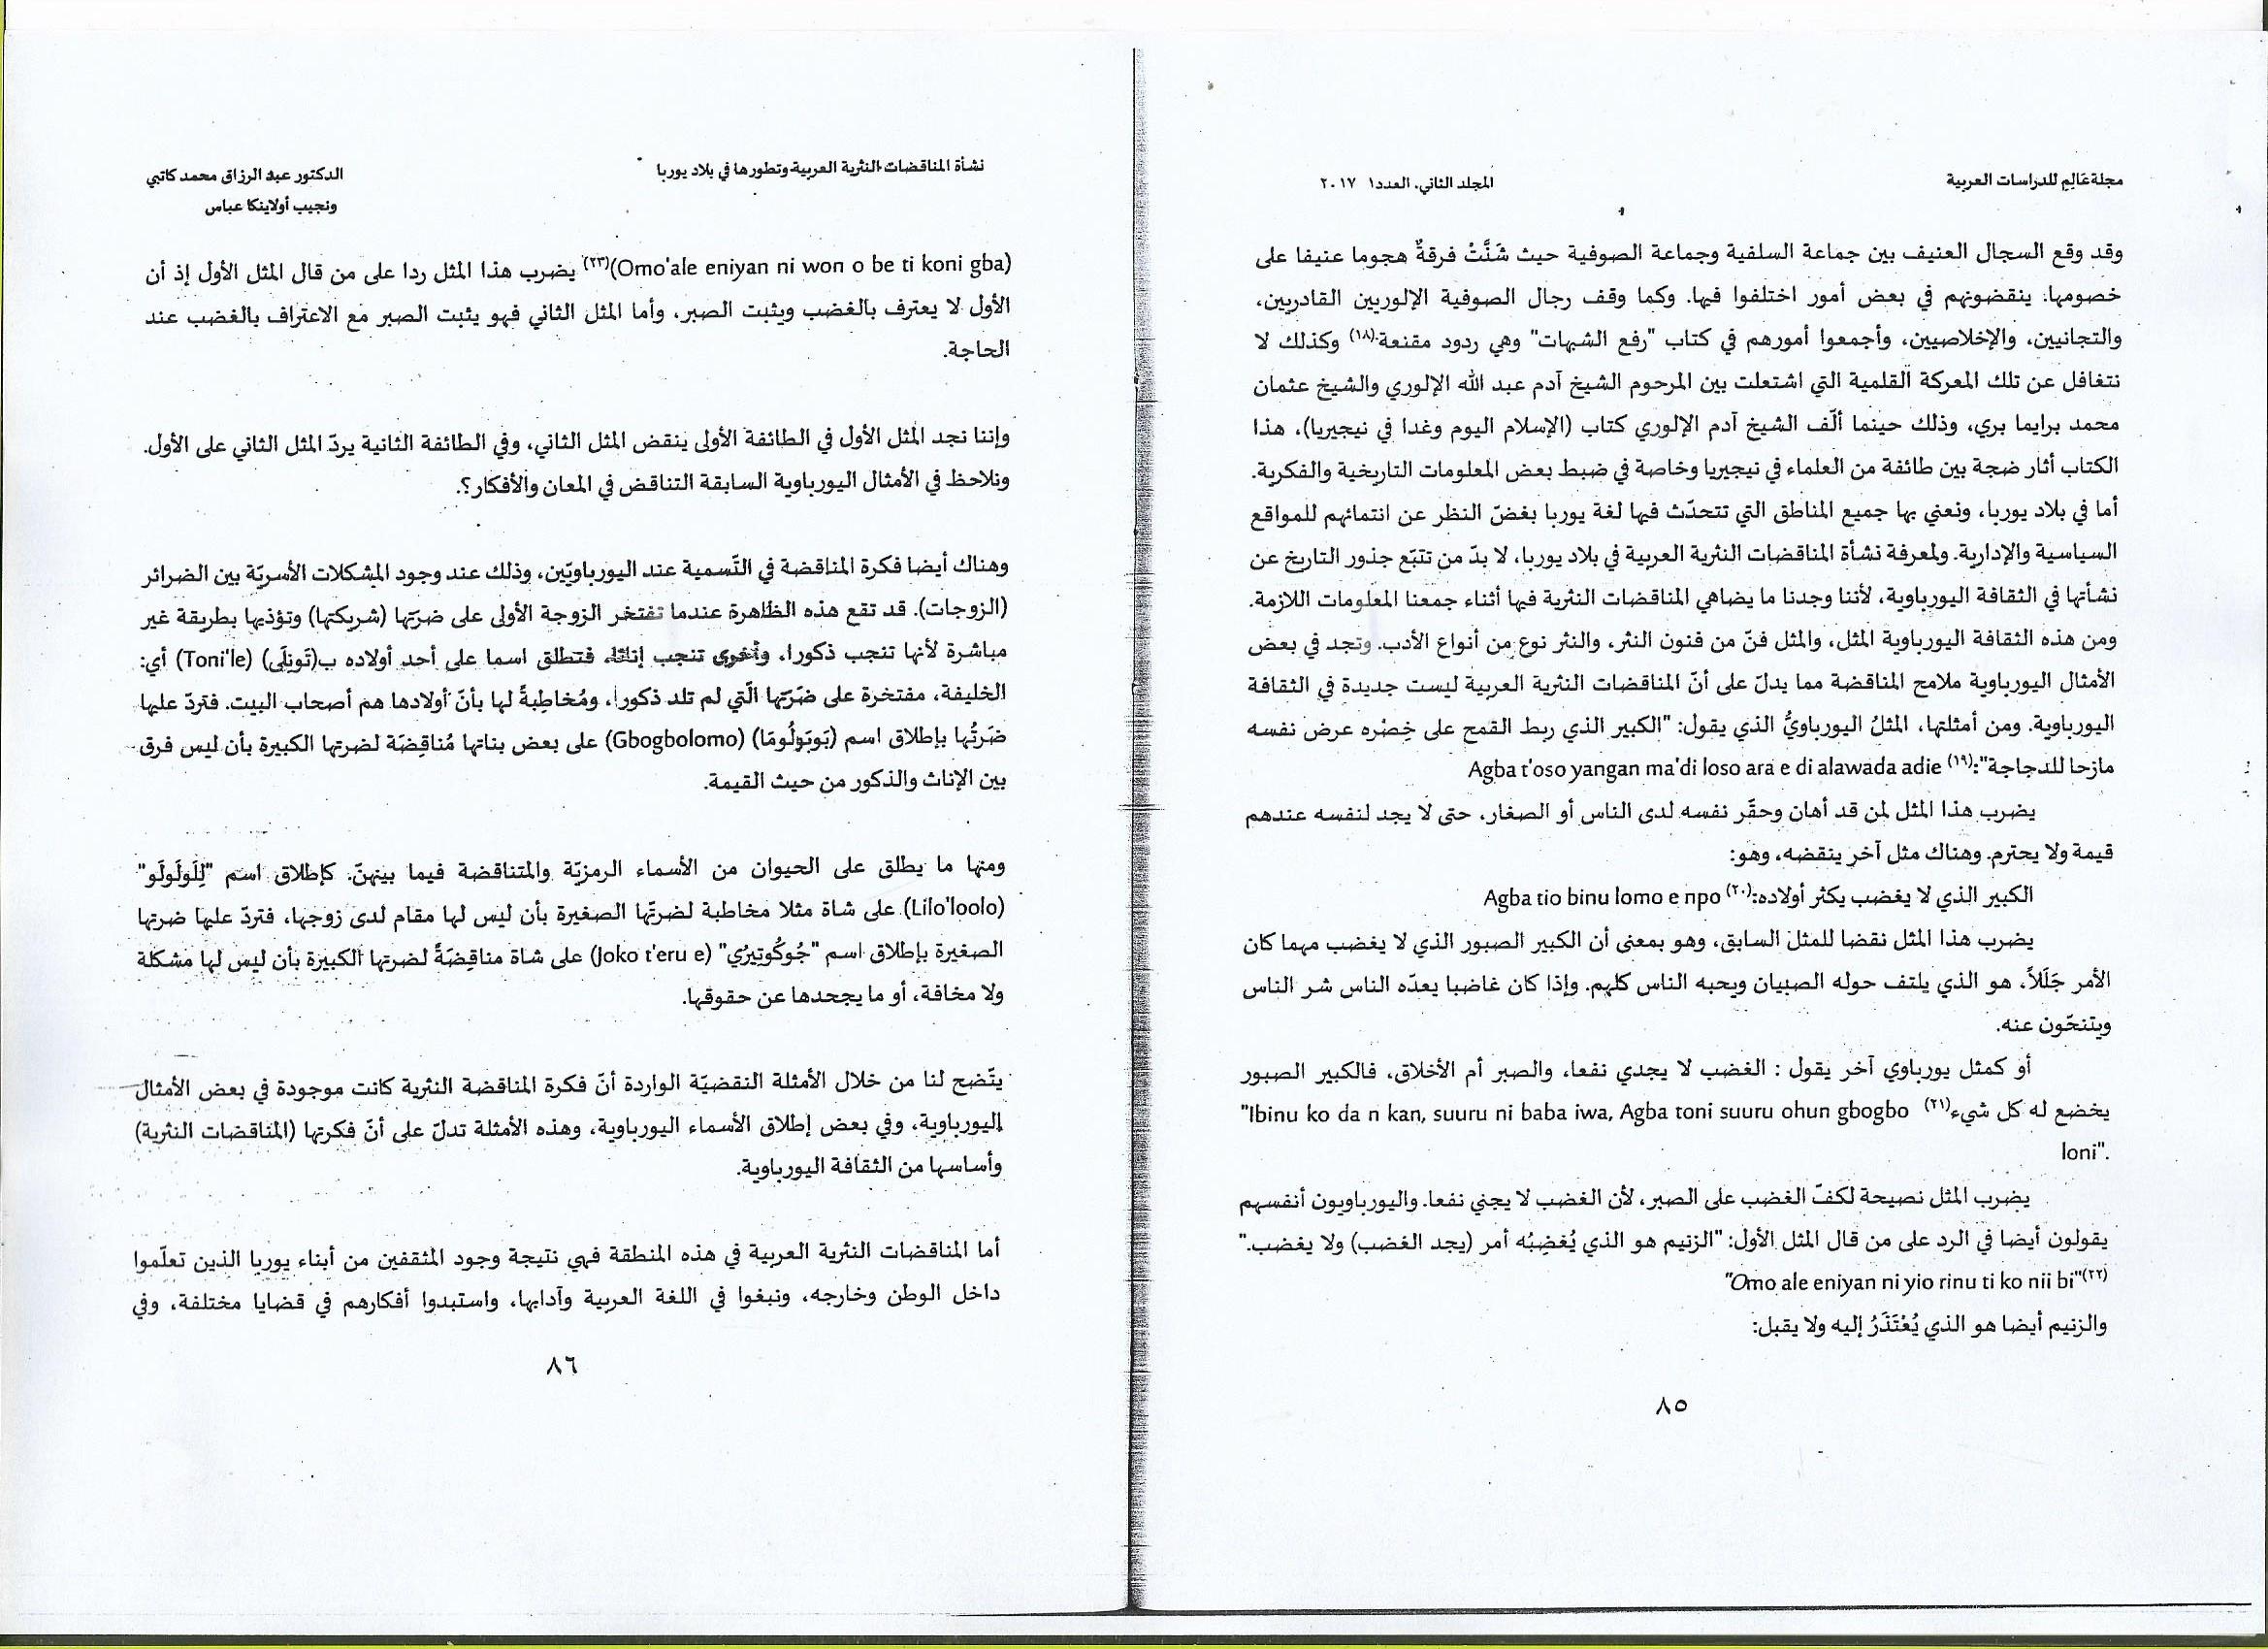 مجلة عَالِم للدراسات العربية
المجلد الثاني. العدد١ ٢٠١٧
وقد وقع السجال العنيف بين جماعة السلفية وجماعة الصوفية حيث شَنَّتْ فرقةٌ هجوما عنيفا على
خصومها: ينقضونهم في بعض أمور اختلفوا فيها. وكما وقف رجال الصوفية الإلوريين القادريين،
والتجانيين، والإخلاصيين، وأجمعوا أمورهم في كتاب "رفع الشبهات" وهي ردود مقنعة.(١٨) وكذلك لا
نتغافل عن تلك المعركة القلمية التي اشتعلت بين المرحوم الشيخ آدم عبد الله الإلوري والشيخ عثمان
محمد برايما بري، وذلك حينما ألّف الشيخ آدم الإلوري كتاب (الإسلام اليوم وغدا في نيجيريا)، هذا
الكتاب أثار ضجة بين طائفة من العلماء في نيجيريا وخاصة في ضبط بعض المعلومات التاريخية والفكرية.
أما في بلاد يوربا، ونعني بها جميع المناطق التي تتحدّث فيها لغة يوربا بغضّ النظر عن انتمائهم للمواقع
السياسية والإدارية. ولمعرفة نشأة المناقضات النثرية العربية في بلاد يوربا، لا بدّ من تتبّع جذور التاريخ عن
نشأتها في الثقافة اليورباوية، لأننا وجدنا ما يضاهي المناقضات النثرية فيها أثناء جمعنا المعلومات اللازمة.
ومن هذه الثقافة اليورباوية المثل، والمثل فنّ من فنون النثر، والنثر نوع من أنواع الأدب. وتجد في بعض
الأمثال اليورباوية ملامح المناقضة مما يدلّ على أنّ المناقضات النثرية العربية ليست جديدة في الثقافة
اليورباوية. ومن أمثلتها، المثلُ اليورباويُّ الذي يقول: "الكبير الذي ربط القمح على خِصْره عرض نفسه
مازحا للدجاجة":(١٩) Agba t'oso yangan ma'di loso ara e di alawada adie
يضرب هذا المثل لمن قد أهان وحقّر نفسه لدى الناس أو الصغار، حتى لا يجد لنفسه عندهم
قيمة ولا يحترم. وهناك مثل آخر ينقضه، وهو:
الكبير الذي لا يغضب يكثر أولاده:(٢٠) Agba tio binu lomo e npo
يضرب هذا المثل نقضا للمثل السابق، وهو بمعنى أن الكبير الصبور الذي لا يغضب مهما كان
الأمر جَلَلاً، هو الذي يلتف حوله الصبيان ويحبه الناس كلهم. وإذا كان غاضبا يعدّه الناس شر الناس
ويتنحّون عنه.
أو كمثل يورباوي آخر يقول : الغضب لا يجدي نفعا، والصبر أم الأخلاق، فالكبير الصبور
يخضع له كل شيء(٢١) "Ibinu ko da n kan, suuru ni baba iwa, Agba toni suuru ohun gbogbo
loni".
يضرب المثل نصيحة لكفّ الغضب على الصبر، لأن الغضب لا يجني نفعا. واليورباويون أنفسهم
يقولون أيضا في الرد على من قال المثل الأول: "الزنيم هو الذي يُغضِبُه أمر (يجد الغضب) ولا يغضب."
(٢٢)"Omo ale eniyan ni yio rinu ti ko nii bi"
والزنيم أيضا هو الذي يُعْتَذَرُ إليه ولا يقبل:
٨٥
نشأة المناقضات النثرية العربية وتطورها في بلاد يوربا
الدكتور عبد الرزاق محمد كاتبي
ونجيب أولاينكا عباس
(Omo'ale eniyan ni won o be ti koni gba)(٢٣) يضرب هذا المثل ردا على من قال المثل الأول إذ أن
الأول لا يعترف بالغضب ويثبت الصبر، وأما المثل الثاني فهو يثبت الصبر مع الاعتراف بالغضب عند
الحاجة.
وإننا نجد المثل الأول في الطائفة الأولى ينقض المثل الثاني، وفي الطائفة الثانية يردّ المثل الثاني على الأول.
ونلاحظ في الأمثال اليورباوية السابقة التناقض في المعان والأفكار؟.
وهناك أيضا فكرة المناقضة في التّسمية عند اليورباويّين، وذلك عند وجود المشكلات الأسريّة بين الضرائر
(الزوجات). قد تقع هذه الظاهرة عندما تفتخر الزوجة الأولى على ضرّتها (شريكتها) وتؤذيها بطريقة غير
مباشرة لأنها تنجب ذكورا، وأخرى تنجب إناثا، فتطلق اسما على أحد أولاده ب(تَونِلَى) (Toni'le) أي:
الخليفة، مفتخرة على ضَرّتها الّتي لم تلد ذكورا، ومُخاطِبةً لها بأنّ أولادها هم أصحاب البيت. فتردّ عليها
ضَرتُها بإطلاق اسم (بَوبَولُومَا) (Gbogbolomo) على بعض بناتها مُناقِضَة لضرتها الكبيرة بأن ليس فرق
بين الإناث والذكور من حيث القيمة.
ومنها ما يطلق على الحيوان من الأسماء الرمزيّة والمتناقضة فيما بينهنّ. كإطلاق اسم "لِلَولَولَو"
(Lilo'loolo) على شاة مثلا مخاطبة لضرتّها الصغيرة بأن ليس لها مقام لدى زوجها، فتردّ عليها ضرتها
الصغيرة بإطلاق اسم "جُوكُوتِيرُي" (Joko t'eru e) على شاة مناقِضَةً لضرتها الكبيرة بأن ليس لها مشكلة
ولا مخافة، أو ما يجحدها عن حقوقها.
يتّضح لنا من خلال الأمثلة النقضيّة الواردة أنّ فكرة المناقضة النثرية كانت موجودة في بعض الأمثال
اليورباوية، وفي بعض إطلاق الأسماء اليورباوية، وهذه الأمثلة تدلّ على أنّ فكرتها (المناقضات النثرية)
وأساسها من الثقافة اليورباوية.
أما المناقضات النثرية العربية في هذه المنطقة فهي نتيجة وجود المثقفين من أبناء يوربا الذين تعلّموا
داخل الوطن وخارجه، ونبغوا في اللغة العربية وآدابها، واستبدوا أفكارهم في قضايا مختلفة، وفي
٨٦